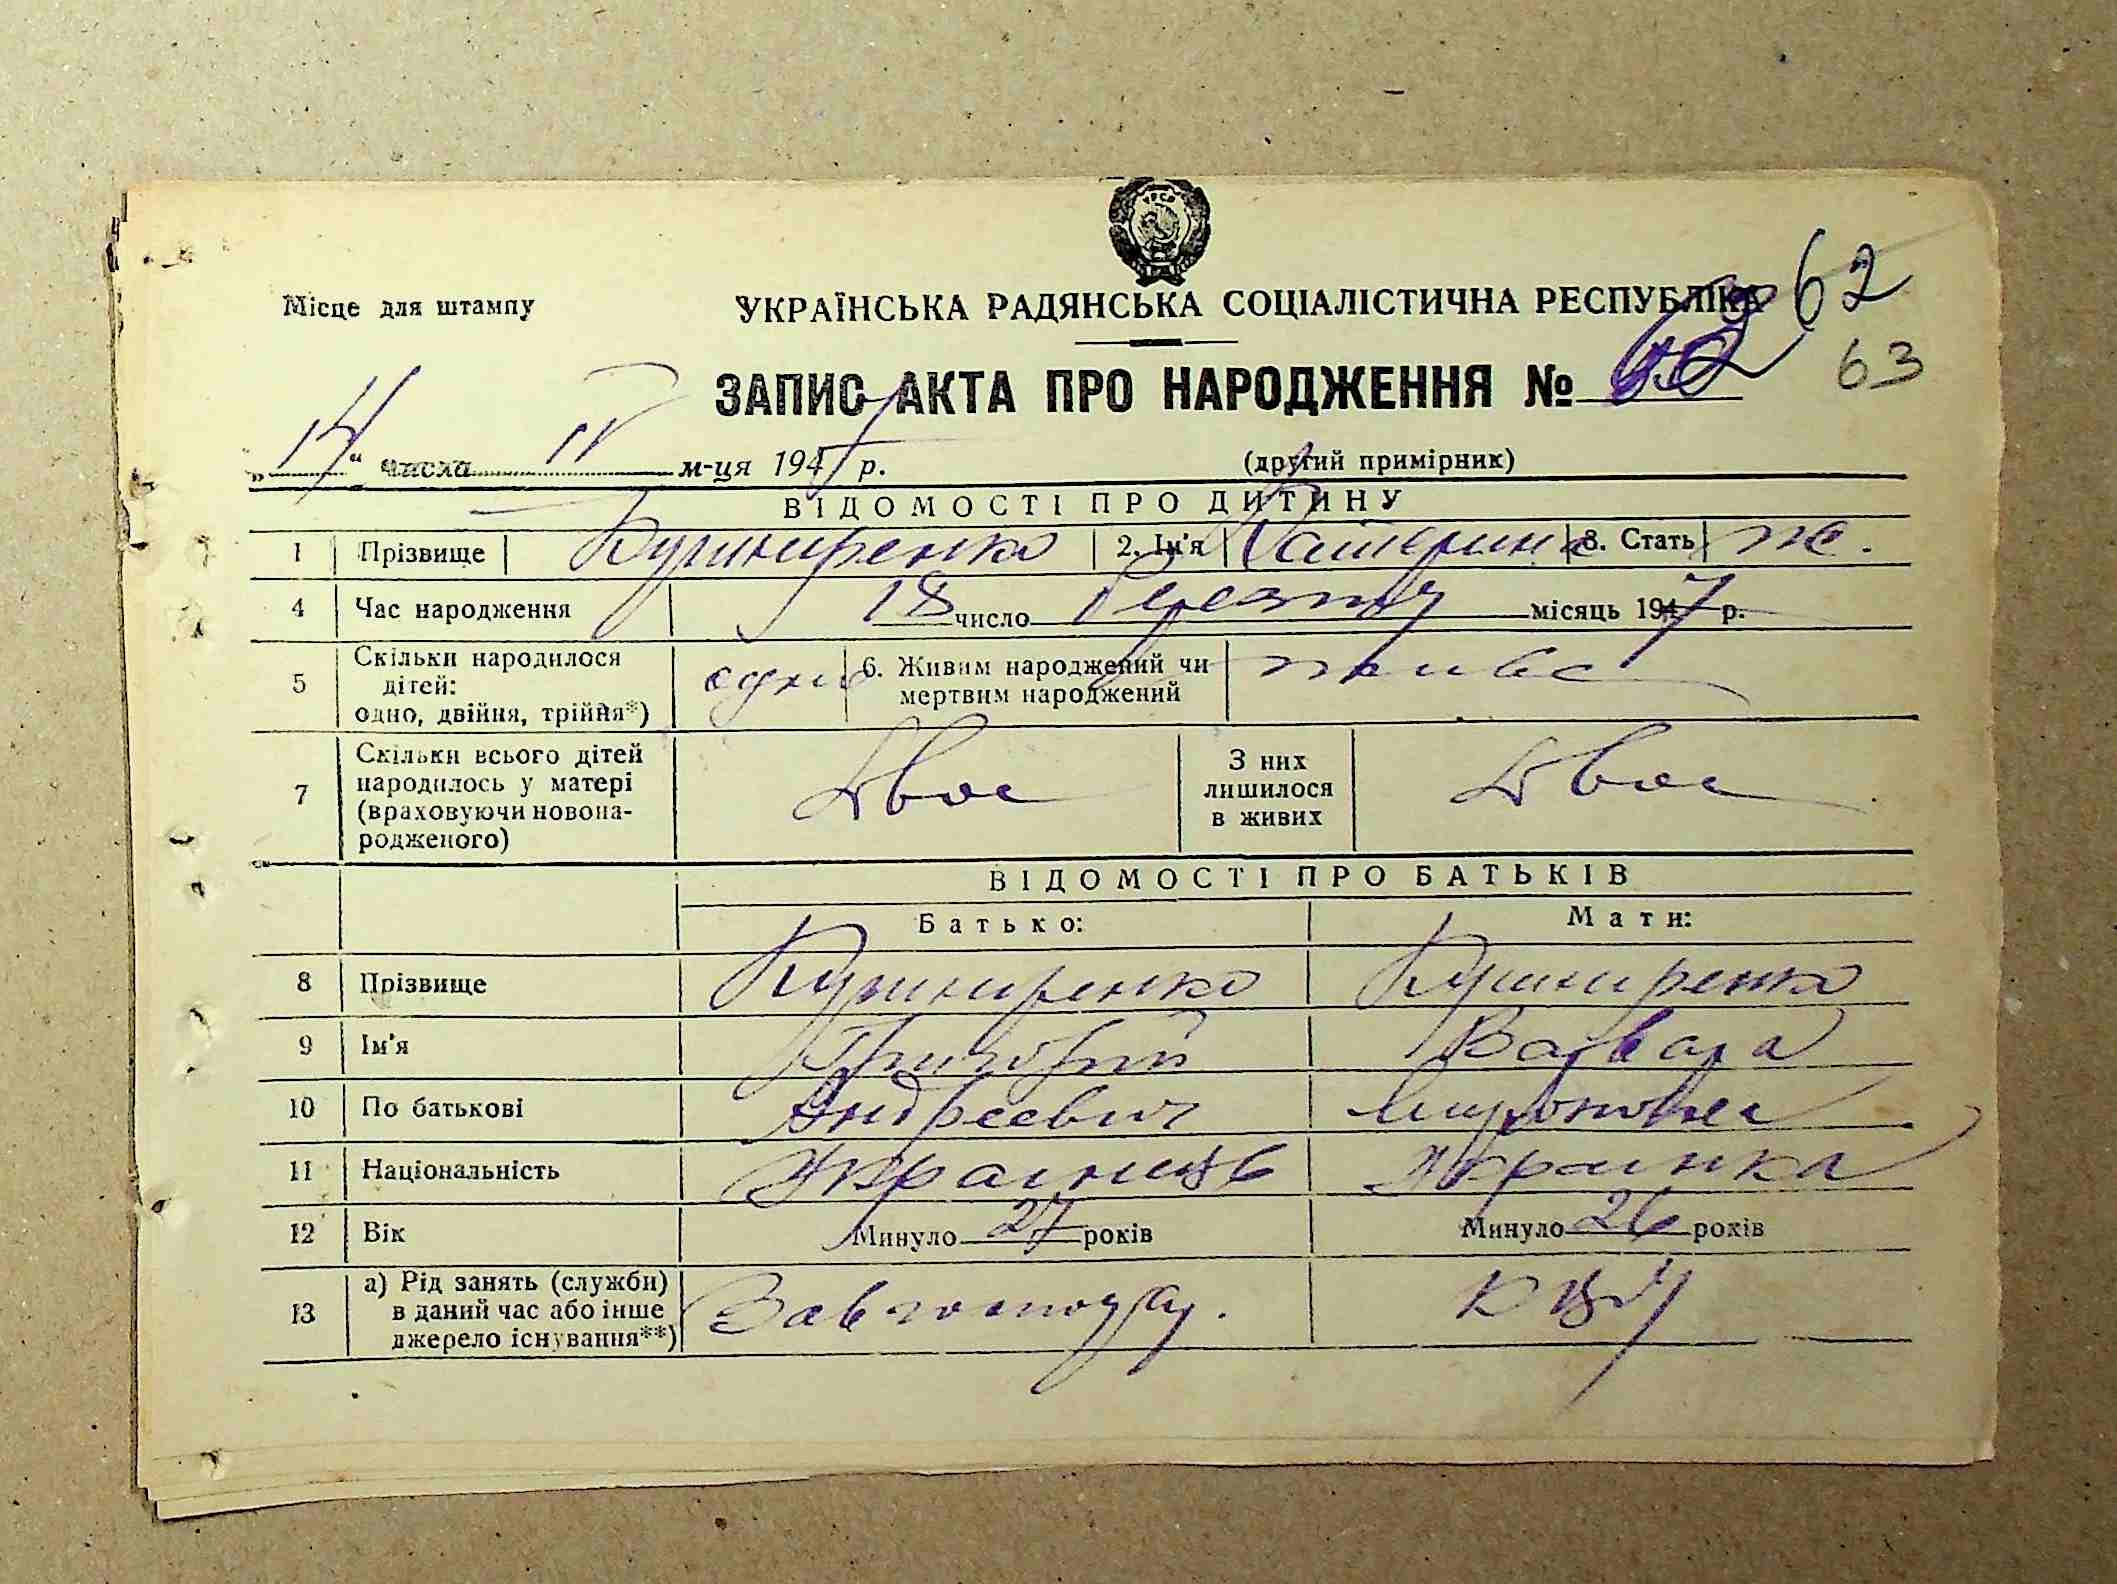 УРСР
62
Місце для штампу УКРАЇНСЬКА РАДЯНСЬКА СОЦІАЛІСТИЧНА РЕСПУБЛІКА
63
ЗАПИС АКТА ПРО НАРОДЖЕННЯ №
„14“ числа IV м-ця 1947 р. (другий примірник)
ВІДОМОСТІ ПРО ДИТИНУ
1 Прізвище Кушниренко 2. Ім'я Катерина 3. Стать ж.
4 Час народження 18 число березня місяць 1947 р.
5 Скільки народилося дітей: одно, двійня, трійня*) одна 6. Живим народжений чи мертвим народжений жива
7 Скільки всього дітей народилось у матері (враховуючи новонародженого) двоє З них лишилося в живих двоє
ВІДОМОСТІ ПРО БАТЬКІВ
Батько: Мати:
8 Прізвище Кушниренко Кушниренко
9 Ім'я Григорий Варвара
10 По батькові Андреевич Мироновна
11 Національність Украинець Украинка
12 Вік Минуло 27 років Минуло 26 років
13 а) Рід занять (служби) в даний час або інше джерело існування**)